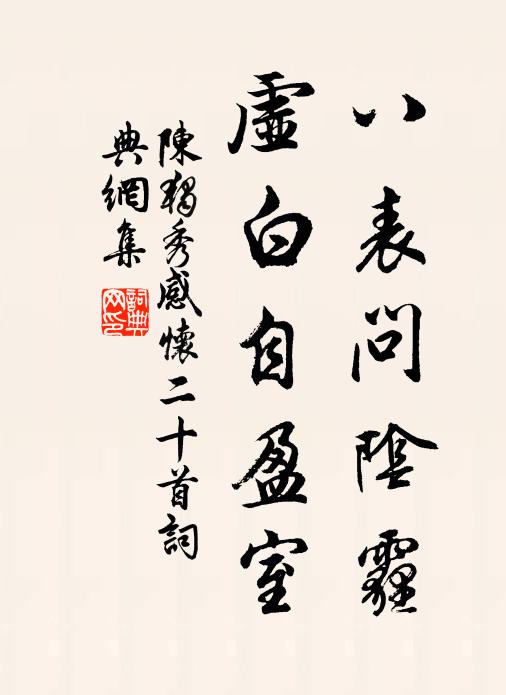 八表問陰霾
虛白自盈室
陳獨秀感懷二十首詞
典網集
詞典網印